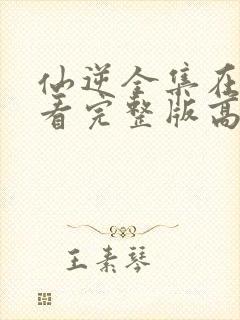 仙逆全集在
看完整版高
王素琴